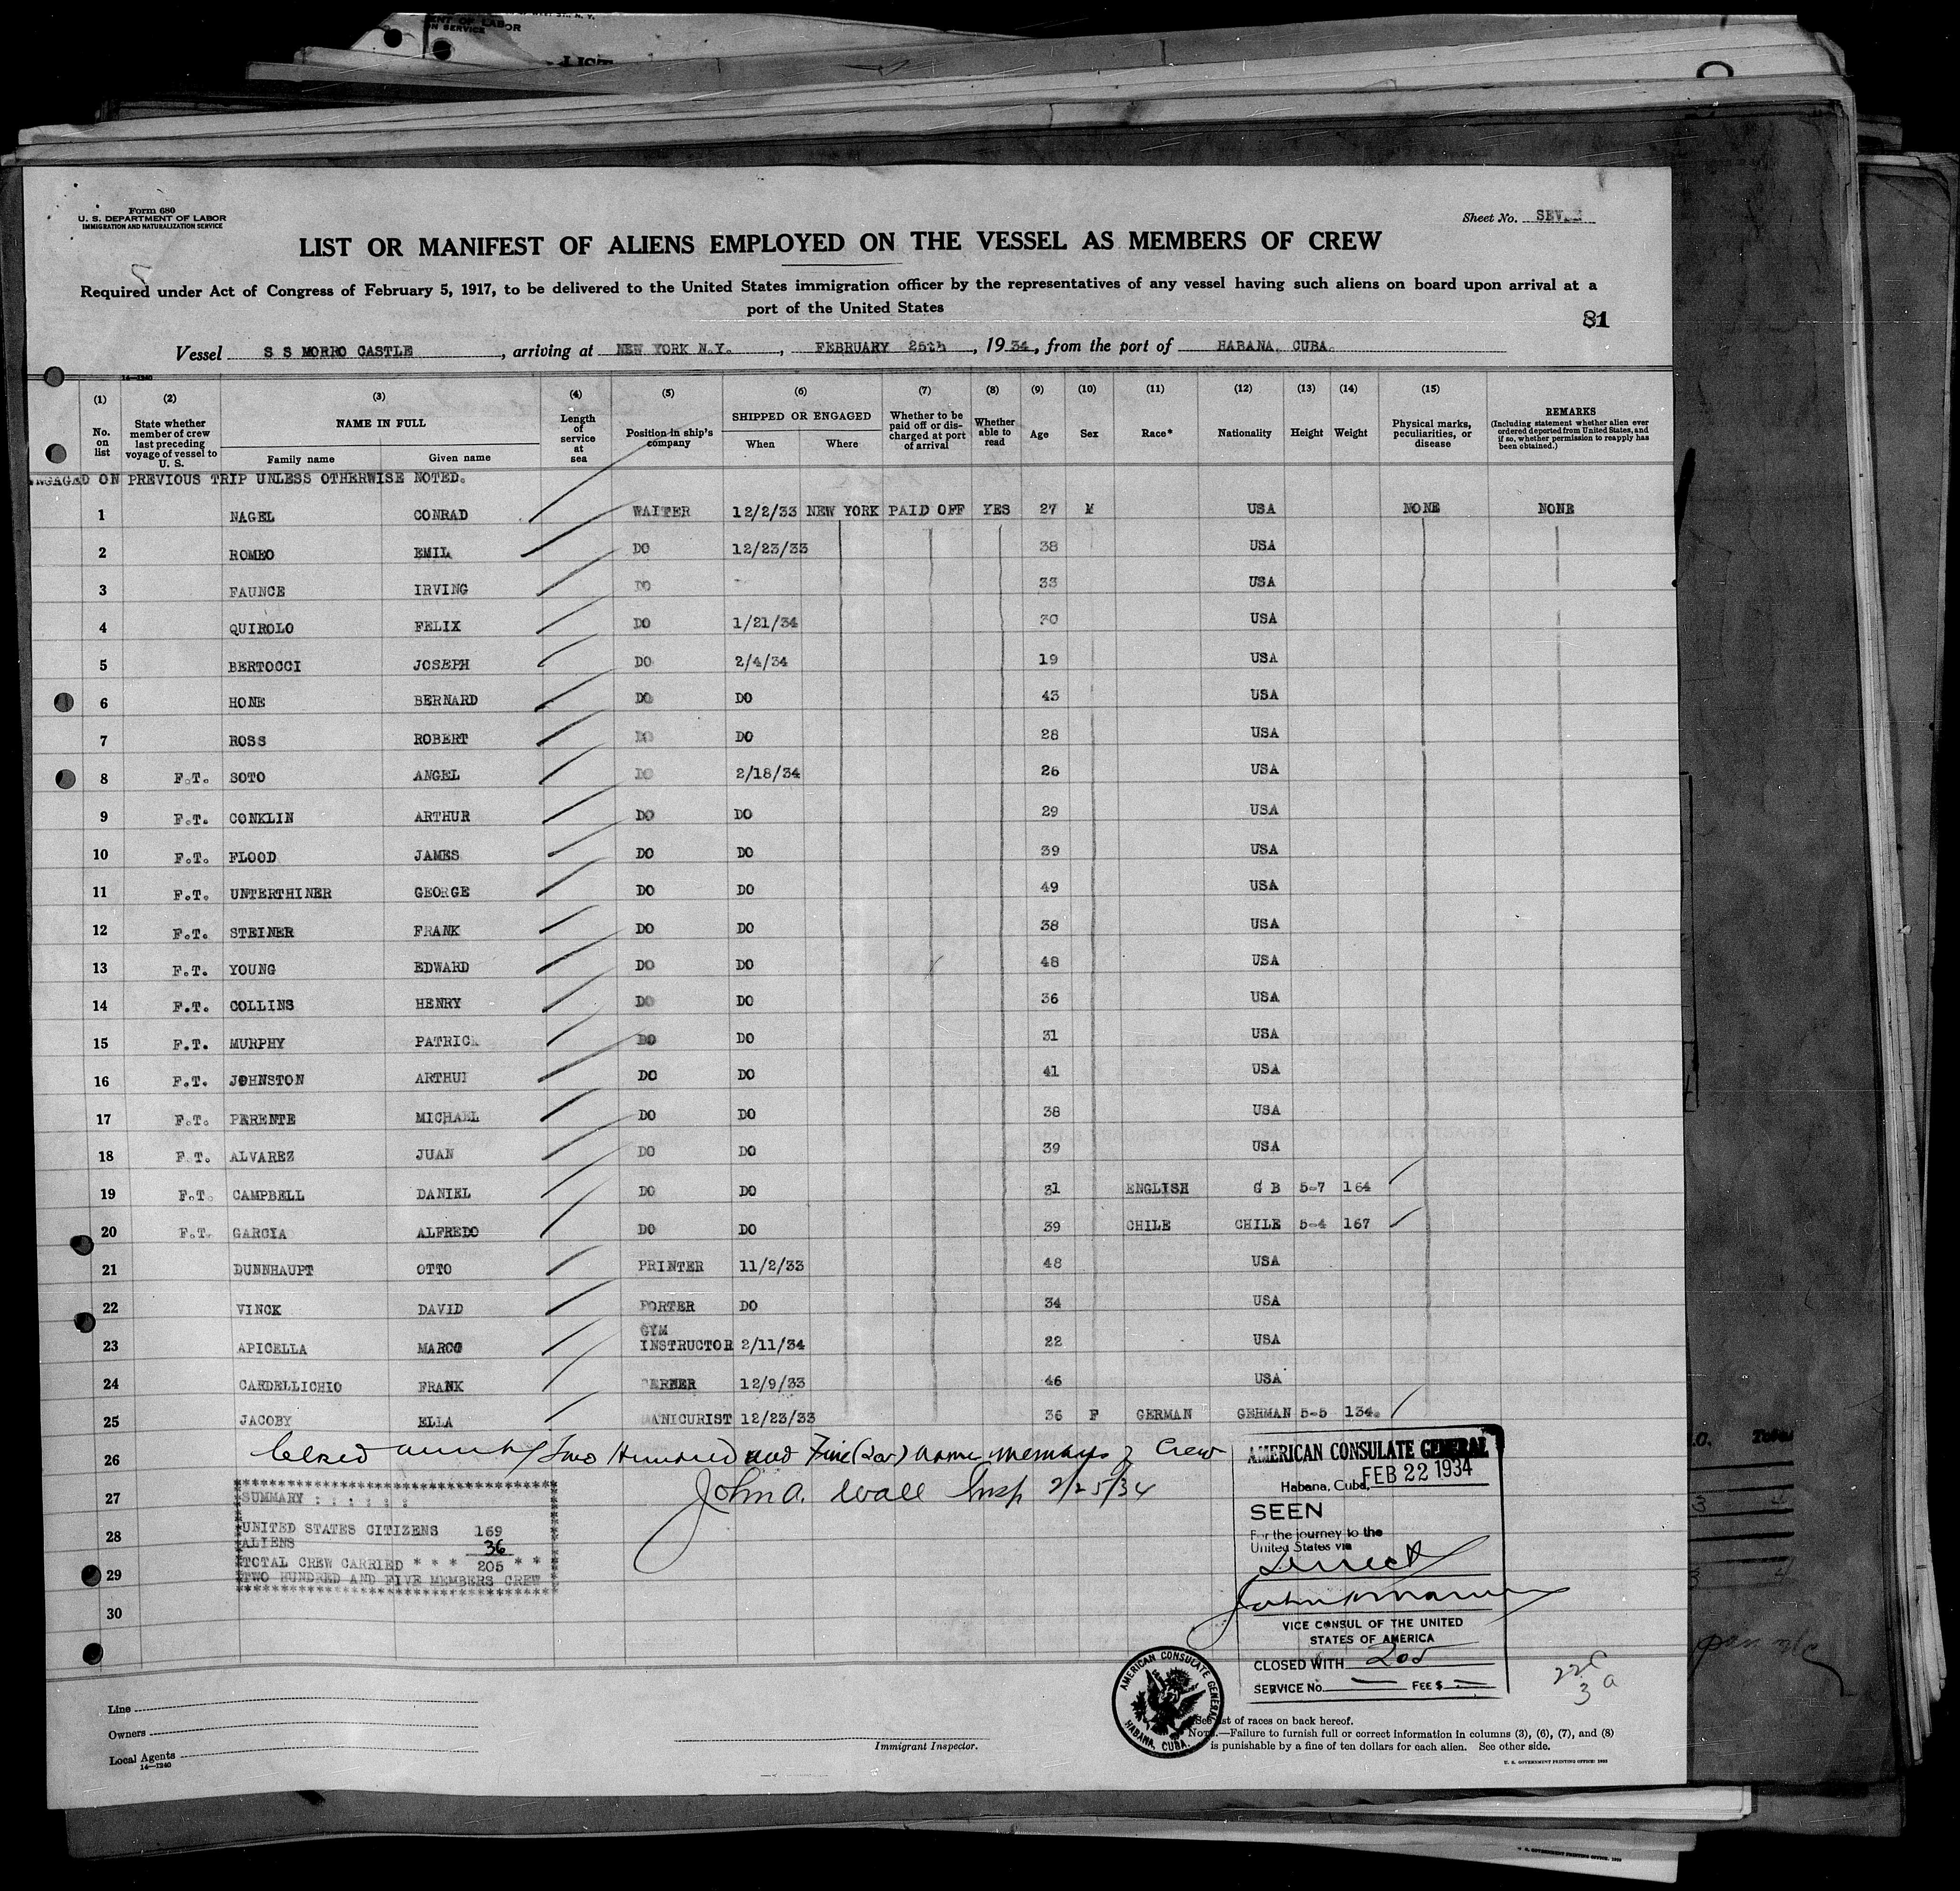 Form 680
U. S. DEPARTMENT OF LABOR
IMMIGRATION AND NATURALIZATION SERVICE
Sheet No.
LIST OR MANIFEST OF ALIENS EMPLOYED ON THE VESSEL AS MEMBERS OF CREW
Required under Act of Congress of February 5, 1917, to be delivered to the United States immigration officer by the representatives of any vessel having such aliens on board upon arrival at a
port of the United States
81
Vessel S S MORRO CASTLE, arriving at NEW YORK N.Y., FEBRUARY 25th, 1934, from the port of HABANA, CUBA.
14—1240
(1) (2) (3) (4) (5) (6) (7) (8) (9) (10) (11) (12) (13) (14) (15)
No. on list
State whether member of crew last preceding voyage of vessel to U. S.
NAME IN FULL
Family name Given name
Length of service at sea
Position in ship's company
SHIPPED OR ENGAGED
When Where
Whether to be paid off or discharged at port of arrival
Whether able to read
Age Sex Race* Nationality Height Weight
Physical marks, peculiarities, or disease
REMARKS
(Including statement whether alien ever ordered deported from United States, and if so, whether permission to reapply has been obtained.)
ENGAGED ON PREVIOUS TRIP UNLESS OTHERWISE NOTED.
1 NAGEL CONRAD WAITER 12/2/33 NEW YORK PAID OFF YES 27 M USA NONE NONE
2 ROMEO EMIL DO 12/23/33 38 USA
3 FAUNCE IRVING DO 33 USA
4 QUIROLO FELIX DO 1/21/34 30 USA
5 BERTOCCI JOSEPH DO 2/4/34 19 USA
6 HONE BERNARD DO DO 43 USA
7 ROSS ROBERT DO DO 28 USA
8 F.T. SOTO ANGEL DO 2/18/34 26 USA
9 F.T. CONKLIN ARTHUR DO DO 29 USA
10 F.T. FLOOD JAMES DO DO 39 USA
11 F.T. UNTERTHINER GEORGE DO DO 49 USA
12 F.T. STEINER FRANK DO DO 38 USA
13 F.T. YOUNG EDWARD DO DO 48 USA
14 F.T. COLLINS HENRY DO DO 36 USA
15 F.T. MURPHY PATRICK DO DO 31 USA
16 F.T. JOHNSTON ARTHUR DO DO 41 USA
17 F.T. PARENTE MICHAEL DO DO 38 USA
18 F.T. ALVAREZ JUAN DO DO 39 USA
19 F.T. CAMPBELL DANIEL DO DO 31 ENGLISH G B 5-7 164
20 F.T. GARCIA ALFREDO DO DO 39 CHILE CHILE 5-4 167
21 DUNNHAUPT OTTO PRINTER 11/2/33 48 USA
22 VINCK DAVID PORTER DO 34 USA
23 APICELLA MARCO GYM INSTRUCTOR 2/11/34 22 USA
24 CARDELLICHIO FRANK 12/9/33 46 USA
25 JACOBY ELLA MANICURIST 12/23/33 36 F GERMAN GERMAN 5-5 134.
26 Two Hundred and Five (205) members of Crew
27 John A. Wall Insp 2/25/34
28
29
30
SUMMARY : : : : : :
UNITED STATES CITIZENS 169
ALIENS 36
TOTAL CREW CARRIED * * * 205 * *
TWO HUNDRED AND FIVE MEMBERS CREW
AMERICAN CONSULATE GENERAL
Habana, Cuba, FEB 22 1934
SEEN
For the journey to the
United States via
Direct
VICE CONSUL OF THE UNITED
STATES OF AMERICA
CLOSED WITH 205
SERVICE No. — FEE $ —
AMERICAN CONSULATE GENERAL
HABANA, CUBA.
Line
Owners
Local Agents
14—1240
Immigrant Inspector.
*See list of races on back hereof.
NOTE.—Failure to furnish full or correct information in columns (3), (6), (7), and (8)
is punishable by a fine of ten dollars for each alien. See other side.